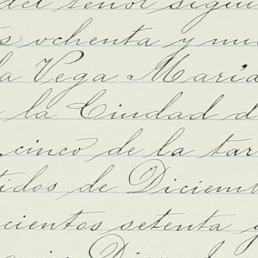 del señor sigui
s ochenta y nu
la Vega Maria
la Ciudad d
cinco de la tar
tidos de Diciem
cientos setenta y